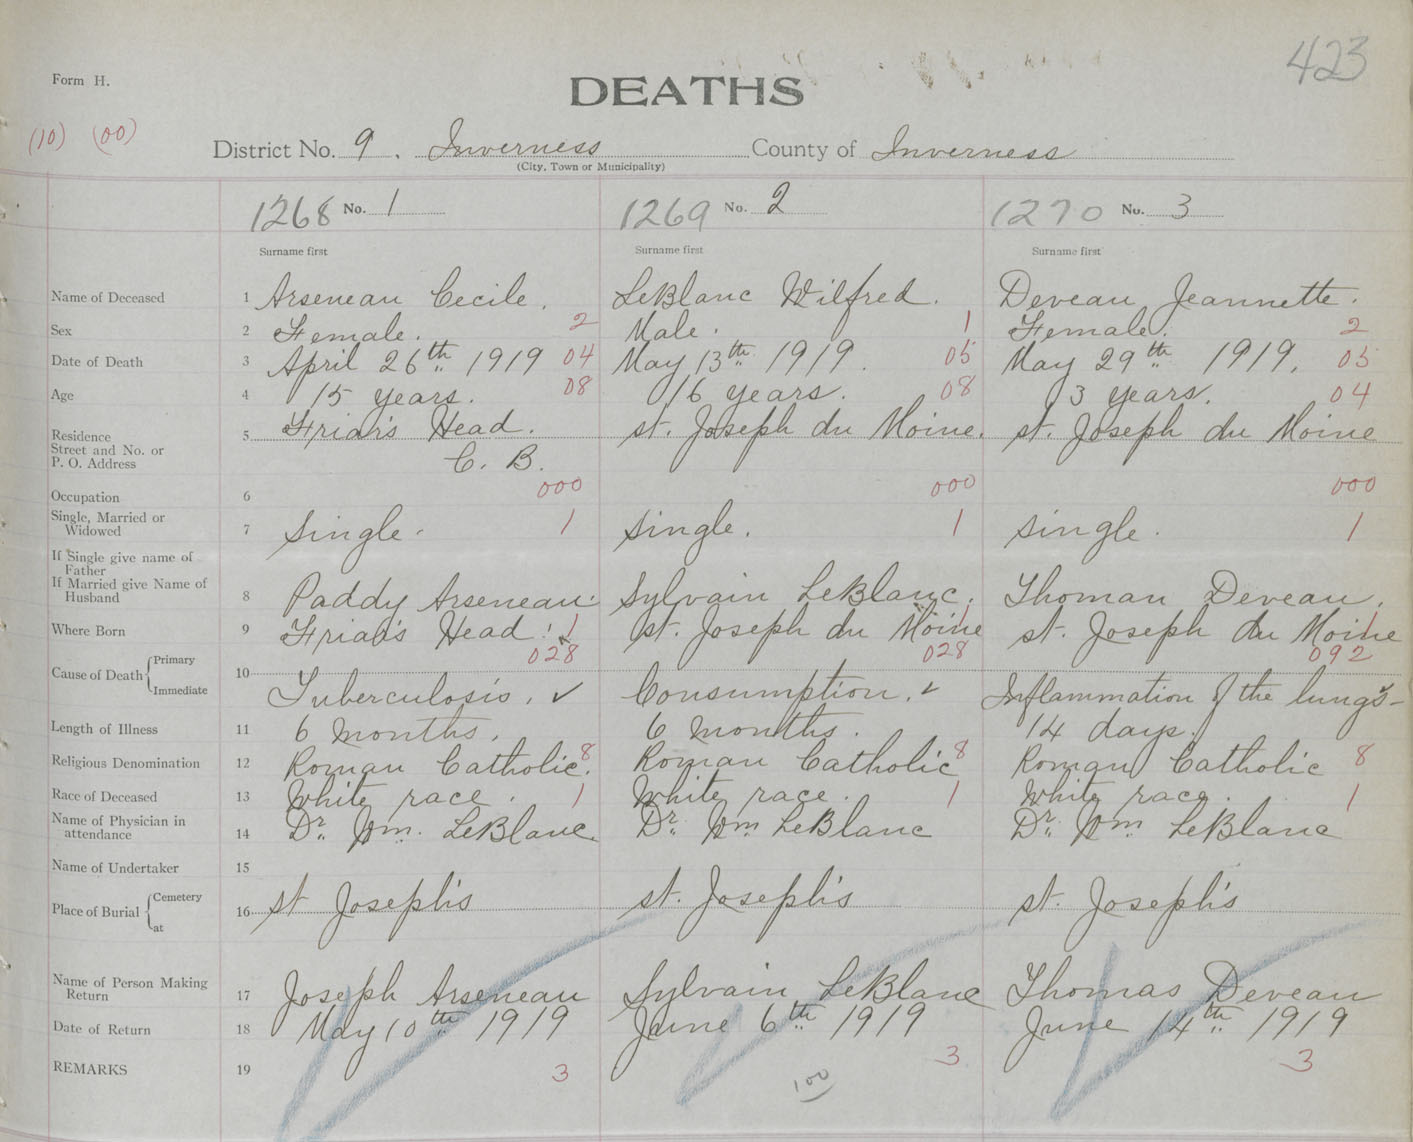 423
Form H.
DEATHS
(10) (00)
District No. 9. Inverness County of Inverness
(City, Town or Municipality)
1268 No. 1 1269 No. 2 1270 No. 3
Surname first Surname first Surname first
Name of Deceased 1 Arseneau Cecile. LeBlanc Wilfred. Deveau, Jeannette.
Sex 2 Female. 2 Male. 1 Female. 2
Date of Death 3 April 26th 1919 04 May 13th 1919. 05 May 29th 1919. 05
Age 4 15 years. 08 16 years. 08 3 years. 04
Residence 5 Friar's Head. st. Joseph du Moine. st. Joseph du Moine
Street and No. or
P. O. Address C. B.
Occupation 6 000 000 000
Single, Married or
Widowed 7 single. 1 single. 1 single. 1
If Single give name of
Father
If Married give Name of
Husband 8 Paddy Arseneau. Sylvain LeBlanc. Thomas Deveau.
Where Born 9 Friar's Head. 1 st. Joseph du Moine 1 st. Joseph du Moine 1
028 028 092
Cause of Death { Primary
Immediate 10 Tuberculosis. ✓ Consumption. ✓ Inflammation of the lungs ✓
Length of Illness 11 6 months. 6 months. 14 days.
Religious Denomination 12 Roman Catholic. 8 Roman Catholic 8 Roman Catholic 8
Race of Deceased 13 White race. 1 White race. 1 White race. 1
Name of Physician in
attendance 14 Dr. Wm. LeBlanc. Dr. Wm LeBlanc Dr. Wm LeBlanc
Name of Undertaker 15
Place of Burial { Cemetery
at 16 st Joseph's st. Joseph's st. Joseph's
Name of Person Making
Return 17 Joseph Arseneau Sylvain LeBlanc Thomas Deveau
Date of Return 18 May 10th 1919 June 6th 1919 June 14th 1919
REMARKS 19 3 3 3
100